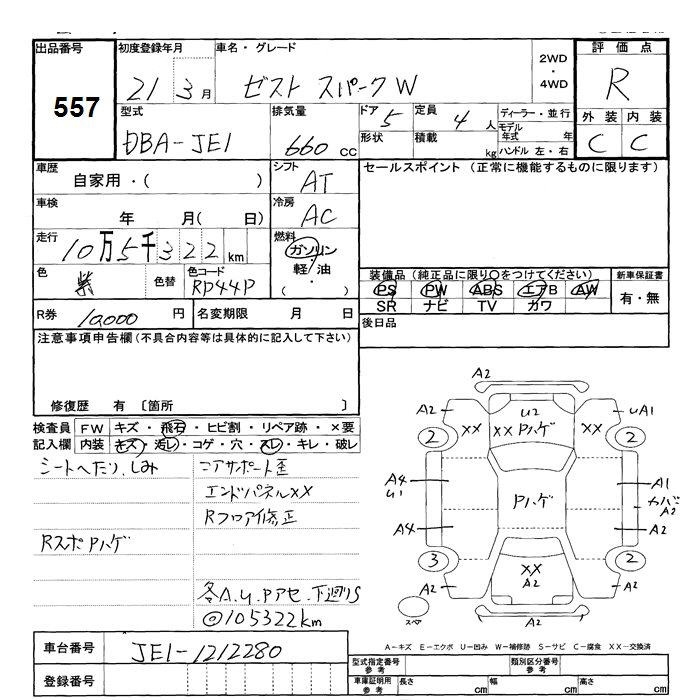 出品番号 初度登録年月 車名・グレード 2WD・4WD 評価点
557 21 3月 ゼスト スパーク W R
型式 排気量 ドア 5 定員 4人 ディーラー・並行 外装 内装
DBA-JE1 660cc 形状 積載 kg モデル年式 年 ハンドル 左・右 C C
車歴 シフト セールスポイント (正常に機能するものに限ります)
自家用・( ) AT
車検 冷房
年 月( ) AC
走行 燃料
10万5千322km ガソリン
色 色替 色コード 軽・油 装備品 (純正品に限り○をつけてください) 新車保証書
紫 RP44P ( ) PS PW ABS エアB AW 有・無
SR ナビ TV カワ
R券 10,000円 名変期限 月 日 後日品
注意事項申告欄 (不具合内容等は具体的に記入して下さい)
修復歴 有 〔箇所 〕
検査員 FW キズ・飛石・ヒビ割・リペア跡・×要
記入欄 内装 キズ・汚レ・コゲ・穴・スレ・キレ・破レ
シートへたり、しみ コアサポート歪
エンドパネルXX
Rフロア修正
Rスポ Pハゲ
各A.U.Pアセ.下廻りS
@105322km
A2
A2 U2 UA1
XX XX Pハゲ XX
2 2
A4 U1 Pハゲ A1
カバーA2
A4 A2
3 XX 2
A2 A2 A2
スペア A2
車台番号 JE1-1212280
A-キズ E-エクボ U-凹み W-補修跡 S-サビ C-腐食 XX-交換済
登録番号 型式指定番号 参考 類別区分番号 参考
車庫証明用 参考 長さ cm 幅 cm 高さ cm